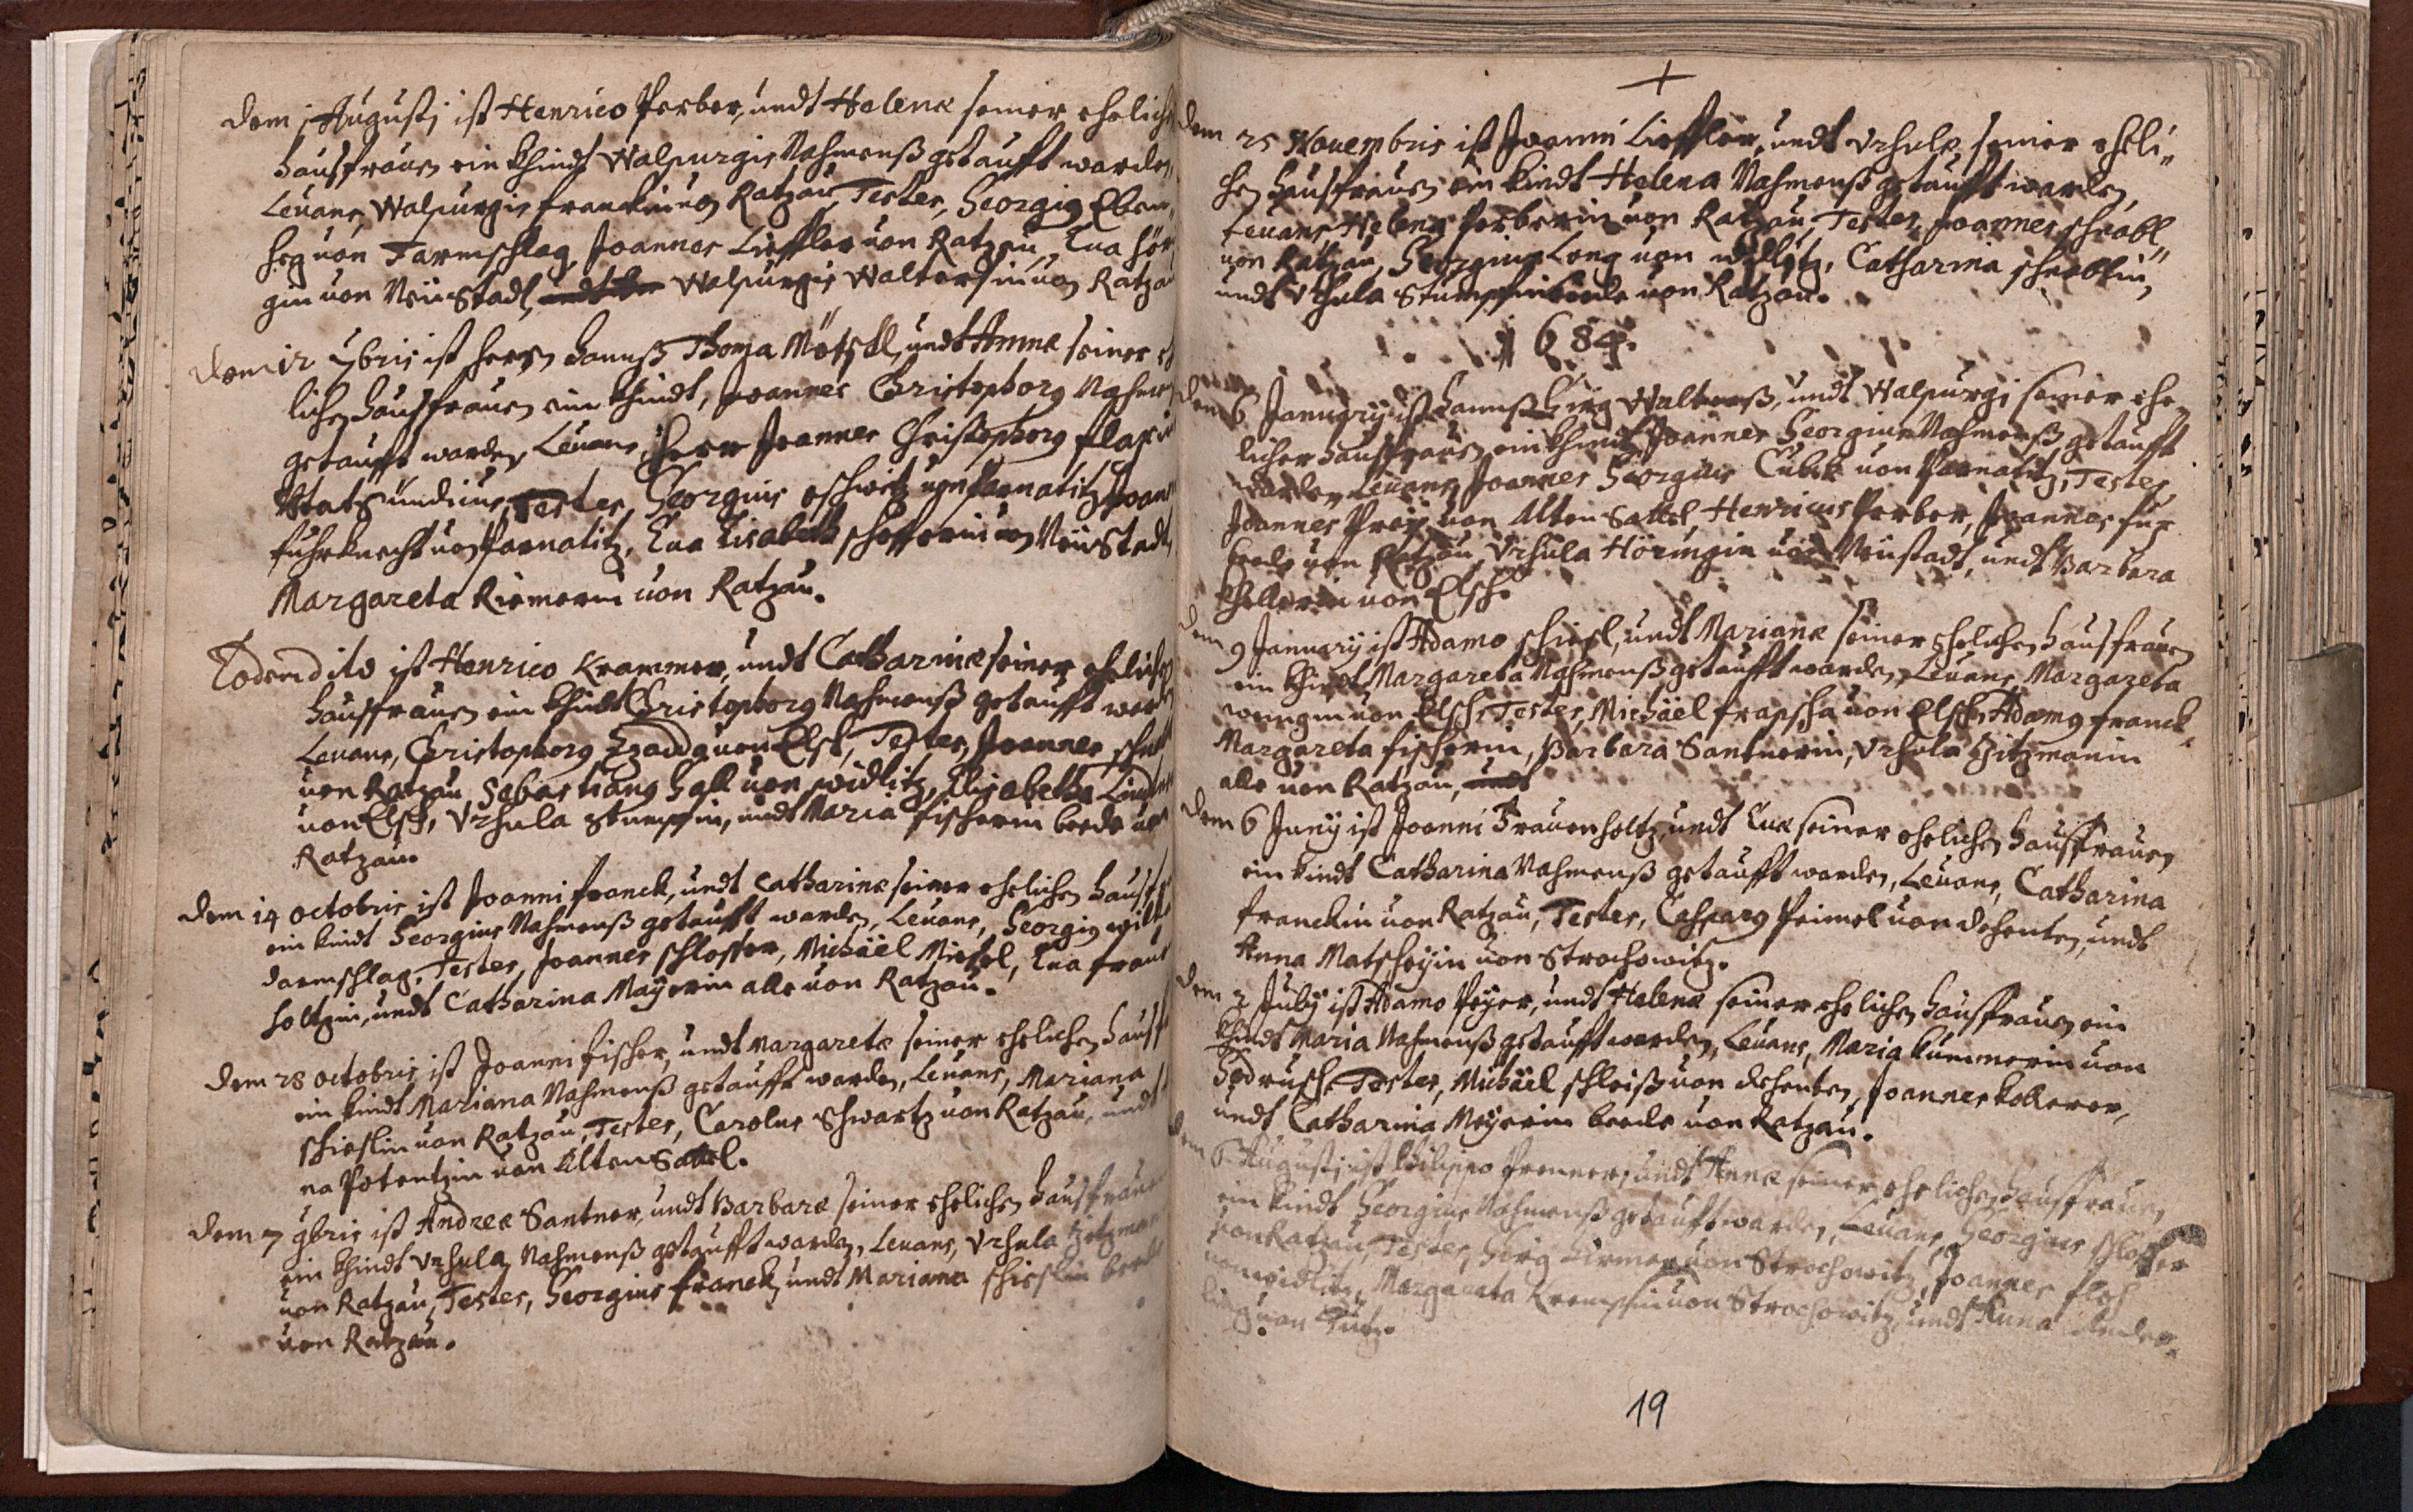 dem 1 Augustj ist Henrico Perber, undt Helenæ seiner ehelich
haussfrauen ein khindt Walpurgis Nahmenß getaufft worden,
Leuans Walpurgis franckin uon Ratzau, Testes, Georgius Eben
uon Farmschlag, Joannes Lieffler uon Ratzau, Eua
gin uon Neustadl, undt Walpurgis Walterßin uon Ratzau
dem 12 7bris ist herrn hannß Thoma undt Annæ seiner
lichen haussfrauen ein khindt, Joannes Christophorus Nahmenß
getaufft worden, Leuans, Herr Joannes Christophorus
Stat Sündicus, Testes, Georgius uon Pernatitz, Joann
fuhrknecht uon Pernatitz, Eua Elisabeth schefferin uon Neustadt,
Margareta Riemerin uon Ratzau.
Eodem dito ist Henrico Krammer, undt Catharinæ seiner ehelichen
haussfrauen ein khindt Christophorus Nahmenß getaufft worden
Leuans, Christophorus uon Elsch, Testes, Joannes
uon Ratzau, Sebastianus hall uon widlitz, Elisabetha
uon Elsch, Vrsula stumpfin, undt Maria fischerin beede uon
Ratzau.
dem 14 octobris ist Joanni franck, undt Catharinæ seiner ehelichen haussf
ein kindt Georgius Nahmenß getaufft worden, Leuans, Georgius
darmschlag, Testes, Joannes schlosser, Michäel Miesel, Eua frauen
holtzin, undt Catharina Mayerin alle uon Ratzau.
dem 28 octobris ist Joanni fischer, undt Margaretæ seiner ehelichen haussf
ein kindt Mariana Nahmenß getaufft worden, Leuans, Mariana
schieslin uon Ratzau, Testes, Carolus Schwartz uon Ratzau, undt
na Potentzin uon Alten Sattel.
dem 7 9bris ist Andreæ Santner, undt Barbaræ seiner ehelichen haussfrauen
ein khindt Vrsula Nahmenß getaufft worden, Leuans, Vrsula Zitzman
uon Ratzau, Testes, Georgius franck, undt Mariana schieslin beede
uon Ratzau.
dem 25 Nouembris ist Joanni Lieffler, undt Vrsulæ seiner eheli„
chen haussfrauen ein kindt Helena Nahmenß getaufft worden,
Leuans Helena Perberin uon Ratzau, Testes, Joannes schnabl„
uon Ratzau, Georgius Long uon widlitz, Catharina schnablin„
undt Vrsula Stumpfin beede uon Ratzau.
1684.
dem 6 January ist hannß Girg Walterß, undt Walpurgi seiner ehe„
licher haussfrauen ein khindt Joannes Georgius Nahmenß getaufft
worden, Leuans, Joannes Georgius Cubik uon Pernatitz, Testes
Joannes Preÿ uon Alten Sattel, Henricus Perber, Joannes
beede uon Ratzau, Vrsula Höringin uon Neustadt, undt Barbara
khellerin uon Elsch.
dem 9 January ist Adamo schiesl, undt Marianæ seiner ehelichen haussfrauen
ein khindt Margareta Nahmenß getaufft worden, Leuans Margareta
uon Elsch, Testes, Michäel frapscha uon Elsch, Adamus franck,
Margareta fischerin, Barbara Santnerin, Vrsula Zitzmanin
alle uon Ratzau, undt
dem 6 Junÿ ist Joanni Frauenholtz, undt Euæ seiner ehelichen haussfrauen
ein kindt Catharina Nahmenß getaufft worden, Leuans, Catharina
franckin uon Ratzau, Testes, Casparus Peimel uon dehenten, undt
Anna Matscheÿin uon Strochowitz.
dem 3 Julÿ ist Adamo Peÿer, undt Helenæ seiner ehelichen haussfrauen ein
khindt Maria Nahmenß getaufft worden, Leuans, Maria kummerin uon
Godrusch, Testes, Michäel schleiß uon dehenten, Joannes kollerer,
undt Catharina Meÿerin beede uon Ratzau.
dem 6 Augustj ist Philippo Prenner, undt Annæ seiner ehelichen haussfrauen
ein kindt Georgius Nahmenß getaufft worden, Leuans, Georgius schlosser
uon Ratzau, Testes, Girg uon Strochowitz, Joannes floß
uon widlitz, Margareta Krempfin uon Strochowitz, undt Anna
uon
19